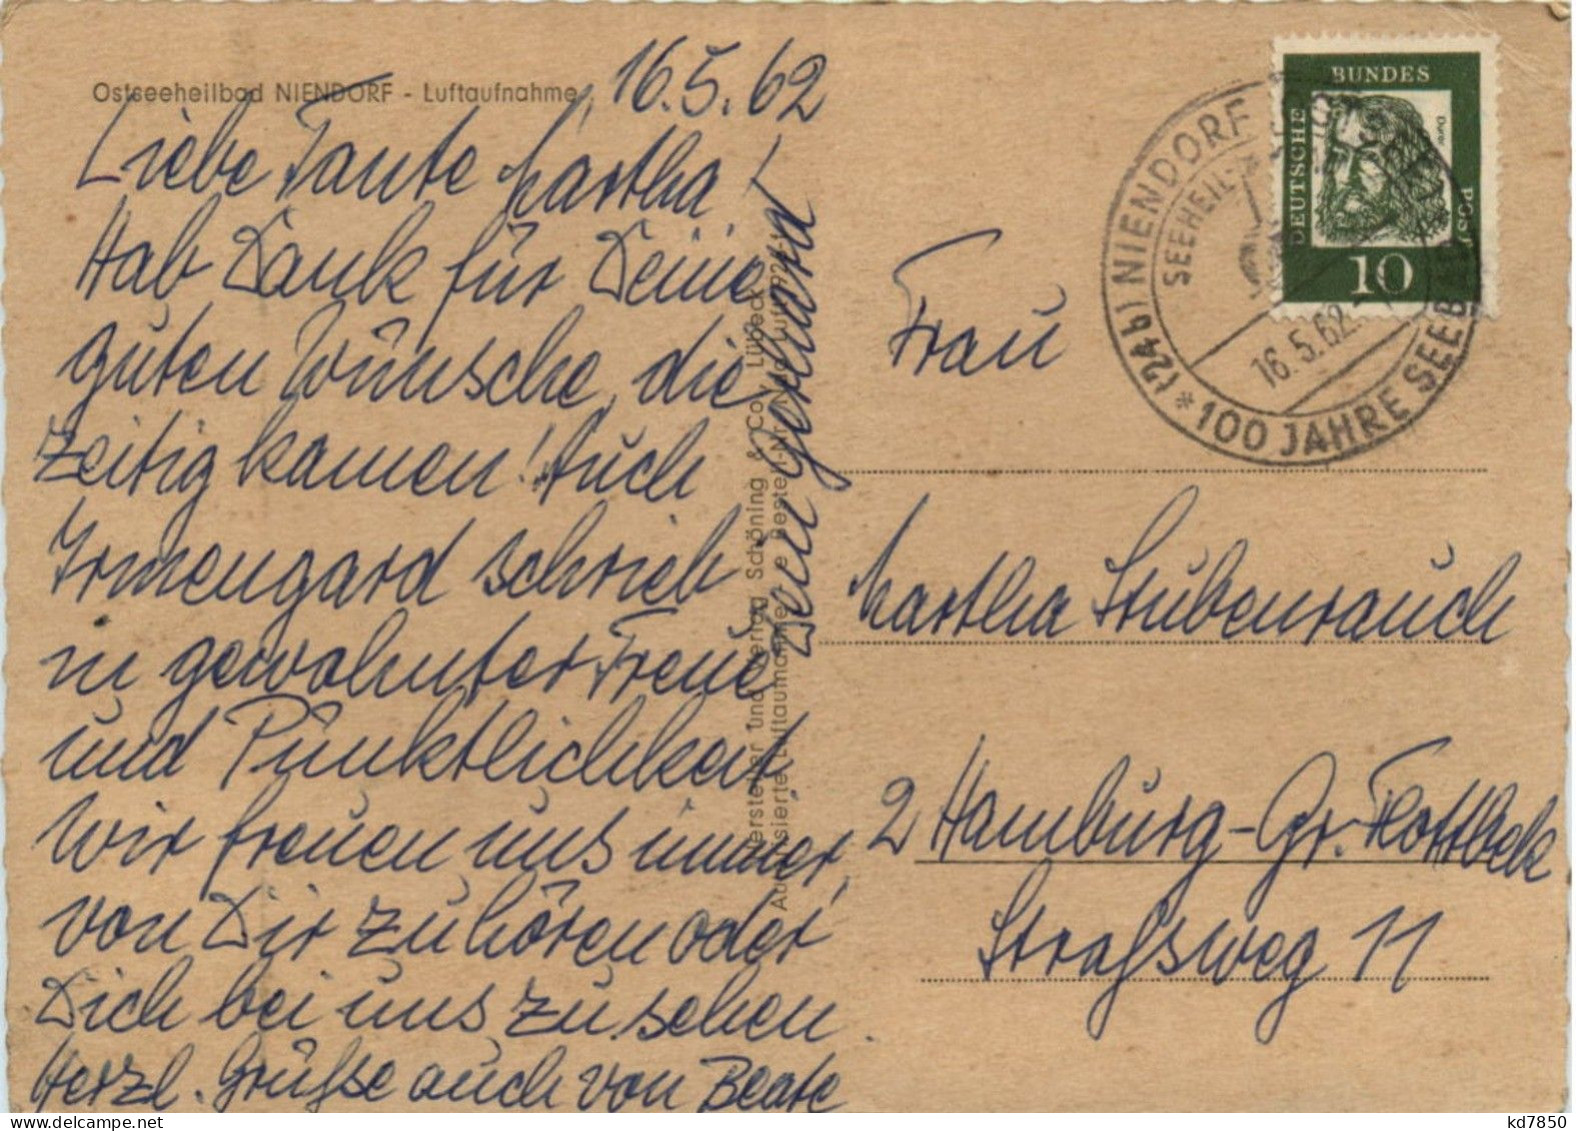 Ostseeheilbad NIENDORF - Luftaufnahme
16.5.62
Liebe Tante Martha!
Hab Dank für Deine
guten Wünsche, die
zeitig kamen! Auch
Irmengard schrieb
in gewohnter Treue
und Pünktlichkeit
Wir freuen uns immer,
von Dir zu hören oder
Dich bei uns zu sehen.
Herzl. Grüße auch von Beate
Dein Gerhard
Hersteller und Verlag Schöning & Co., Lübeck
BUNDES
DEUTSCHE
POST
Dürer
10
(24b) NIENDORF
SEEHEIL-
16.5.62
* 100 JAHRE SEEBAD
Frau
Martha Stubenrauch
2 Hamburg-Gr. Flottbek
Straßweg 11
kd7850